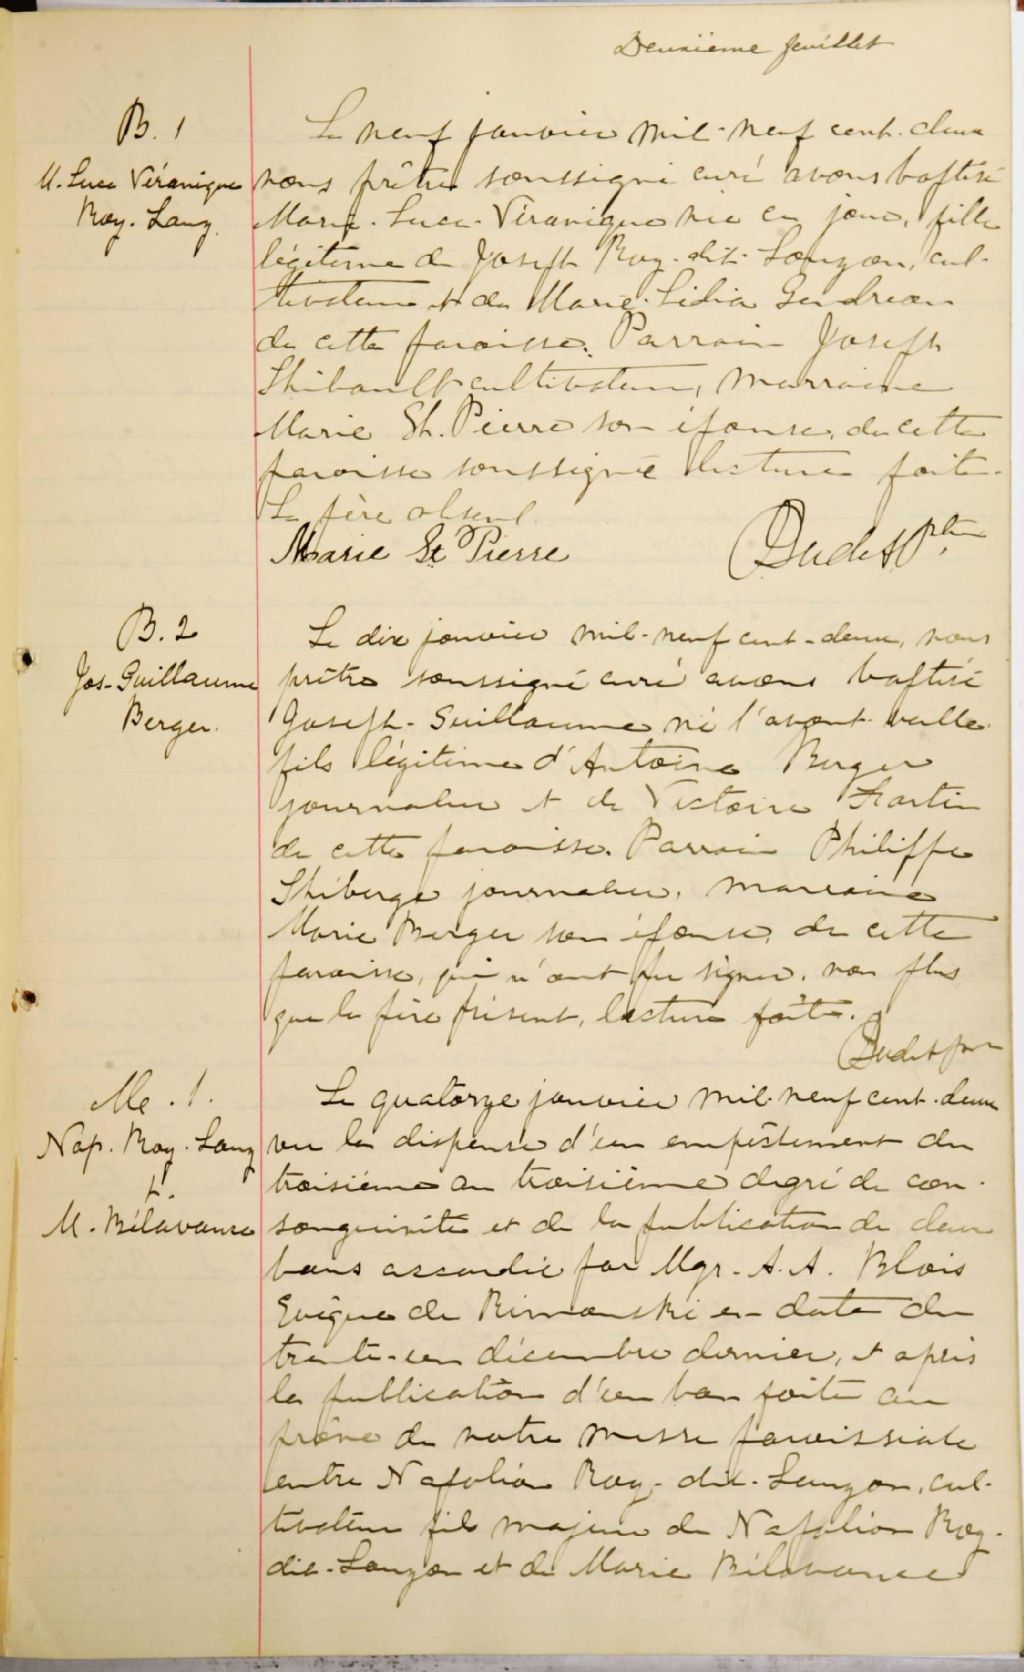 Deuxième feuillet
B. 1
M. Luce Véronique
Roy. Lauz.
Le neuf janvier mil-neuf cent-deux
nous prêtre soussigné curé avons baptisé
Marie-Luce-Véronique née ce jour, fille
légitime de Joseph Roy-dit-Lauzon, cul-
tivateur et de Marie-Lidia Gendreau
de cette paroisse. Parrain Joseph
Thibault cultivateur, marraine
Marie St. Pierre son épouse, de cette
paroisse soussignée lecture faite.
Le père absent.
Marie St Pierre
Oudet Ptre
B. 2
Jos-Guillaume
Berger.
Le dix janvier mil-neuf cent-deux, nous
prêtre soussigné curé avons baptisé
Joseph-Guillaume né l'avant-veille
fils légitime d'Antoine Berger
journalier et de Victoire
de cette paroisse. Parrain Philippe
Thiberge journalier, marraine
Marie Berger son épouse, de cette
paroisse, qui n'ont pu signer, non plus
que le père présent, lecture faite.
Oudet ptre
Me. 1.
Nap. Roy. Lauz
&.
M. Bélavance
Le quatorze janvier mil-neuf cent-deux
vu la dispense d'un empêchement du
troisième au troisième degré de con-
sanguinité et de la publication de deux
bans accordée par Mgr. A. A. Blais
Evêque de Rimouski en date du
trente-un décembre dernier, et après
la publication d'un ban faite au
prône de notre messe paroissiale
entre Napoléon Roy-dit-Lauzon, cul-
tivateur fils majeur de Napoléon Roy-
dit-Lauzon et de Marie Bélavance